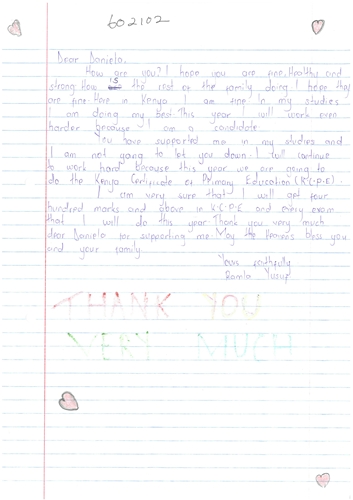 602102
Dear Daniela,
How are you? I hope you are fine, Healthy and
strong How is the rest of the family doing I hope they
are fine. Here in Kenya I am fine. In my studies
I am doing my best This year I will work even
harder because I am a candidate.
You have supported me in my studies and
I am not going to let you down. I will continue
to work hard because this year we are going to
do the Kenya Certificate of Primary Education (K.C.P.E).
I am very sure that I will get four
hundred marks and above in K.C.P.E and every exam
that I will do this year. Thank you very much
dear Daniela for supporting me. May the heavens bless you
and your family.
Yours faithfully
Ramla Yusuf
THANK YOU
VERY MUCH